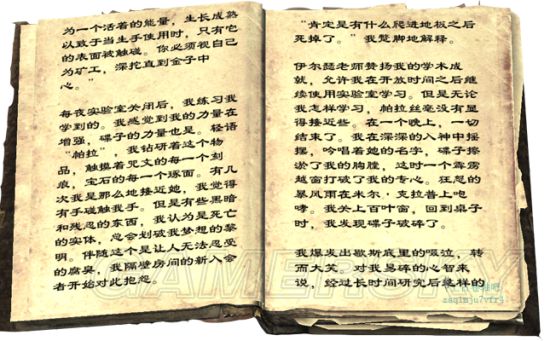 为一个活着的能量，生长成熟
以致于当生手使用时，只有它
的表面被触碰。你必须视自己
为矿工，深挖直到金子中
心。”
每夜实验室关闭后，我练习我
学到的。我感觉到我的力量在
增强，碟子的力量也是。轻语
“帕拉”，我钻研着这个物
品，触摸着咒文的每一个刻
痕，宝石的每一个琢面。有几
次我是那么地接近她，我觉得
有手碰触我手。但是有些黑暗
和残忍的东西，我认为是死亡
的实体，总会划破我梦想的黎
明。伴随这个是让人无法忍受
的腐臭，我隔壁房间的新入会
者开始对此抱怨。
“肯定是有什么爬进地板之后
死掉了。”我蹩脚地解释。
伊尔瑟老师赞扬我的学术成
就，允许我在开放时间之后继
续使用实验室学习。但是无论
我怎样学习，帕拉丝毫没有显
得接近些。在一个晚上，一切
结束了。我在深深的入神中摇
摆，吟唱着她的名字，碟子擦
淤了我的胸膛，这时一个霹雳
越窗打破了我的专心。狂怒的
暴风雨在米尔·克拉普上咆
哮。我关上百叶窗，回到桌子
时，我发现碟子破碎了。
我爆发出歇斯底里的啜泣，转
而大笑。对我易碎的心智来
说，经过长时间研究后这样的
GAMERSKY
zaqimju7vfr4